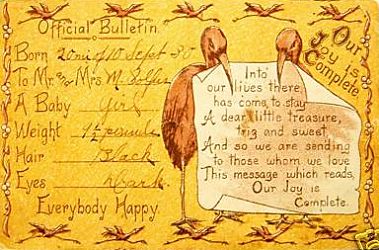 Official Bulletin
Born Sept 30
To Mr. and Mrs M.
A Baby Girl
Weight
Hair Black
Eyes Dark
Everybody Happy.
Our
Joy is
Complete
Into
our lives there
has come to stay
A dear little treasure,
trig and sweet,
And so we are sending
to those whom we love
This message which reads,
Our Joy is
Complete.